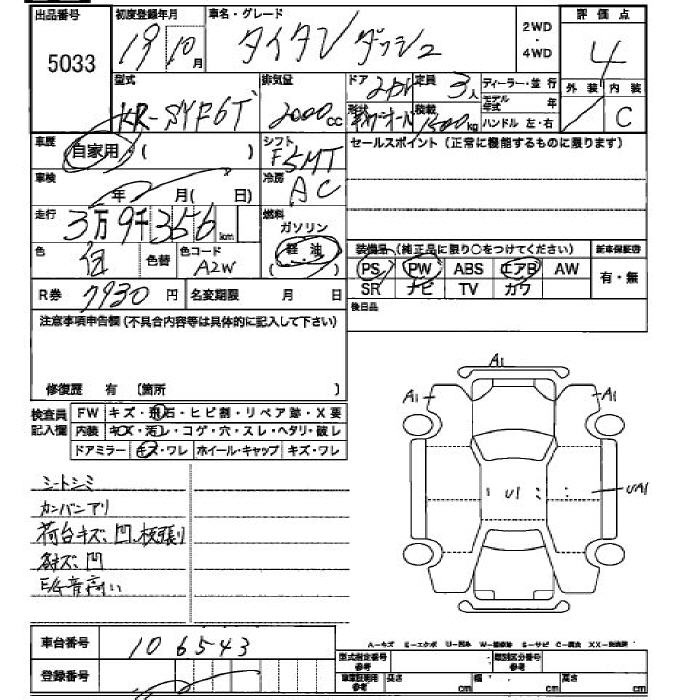 出品番号 初度登録年月 車名・グレード 評価点
5033 19 10月 タイタン ダッシュ 2WD・4WD 4
型式 排気量 ドア 定員 3人 ディーラー・並行 外装 内装
KR-SYF6T 2000cc 形状 積載 1500kg モデル年式 年 C
ハンドル 左・右
車歴 自家用 ( ) シフト F5MT セールスポイント(正常に機能するものに限ります)
車検 年 月( 日) 冷房 AC
走行 3万9千356km 燃料 ガソリン
軽油
色 白 色替 色コード A2W 装備品(純正品に限り○をつけてください) 新車保証書
PS PW ABS エアB AW 有・無
R券 7930円 名変期限 月 日 SR ナビ TV カワ
注意事項申告欄(不具合内容等は具体的に記入して下さい) 後日品
修復歴 有 〔箇所 〕
検査員記入欄 FW キズ・飛石・ヒビ割・リペア跡・X要
内装 キズ・汚レ・コゲ・穴・スレ・ヘタリ・破レ
ドアミラー キズ・ワレ ホイール・キャップ キズ・ワレ
A1
A1 A1
U1 UA1
シートシミ
カンバンアリ
荷台キズ、凹、板張り
各キズ、凹
車台番号 106543
A-キズ E-エクボ U-凹み W-補修跡 S-サビ C-腐食 XX-交換済
型式指定番号 参考 類別区分番号 参考
登録番号 車庫証明用 参考 長さ cm 幅 cm 高さ cm